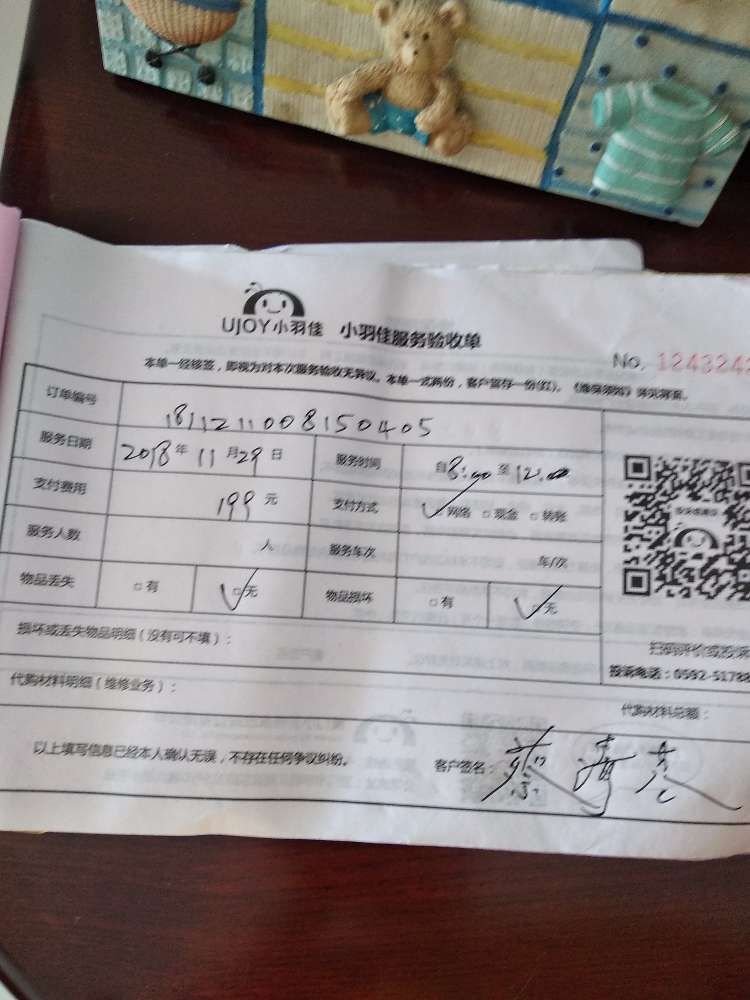 UJOY小羽佳 小羽佳服务验收单
No. 1243242
本单一经接签，即视为对本次服务验收无异议。本单一式两份，客户留存一份(红)。《维保须知》详见背面。
订单编号 1811211008150405
服务日期 2018年11月29日 服务时间 自8:00至12:00
支付费用 199元 支付方式 ✓网络 □现金 □转账
服务人数 人 服务车次 车/次
物品丢失 □有 ✓无 物品损坏 □有 ✓无
扫码评价或投诉
损坏或丢失物品明细（没有可不填）：
投诉电话：0592-51788
代购材料明细（维修业务）：
代购材料总额：
以上填写信息已经本人确认无误，不存在任何争议纠纷。 客户签名：